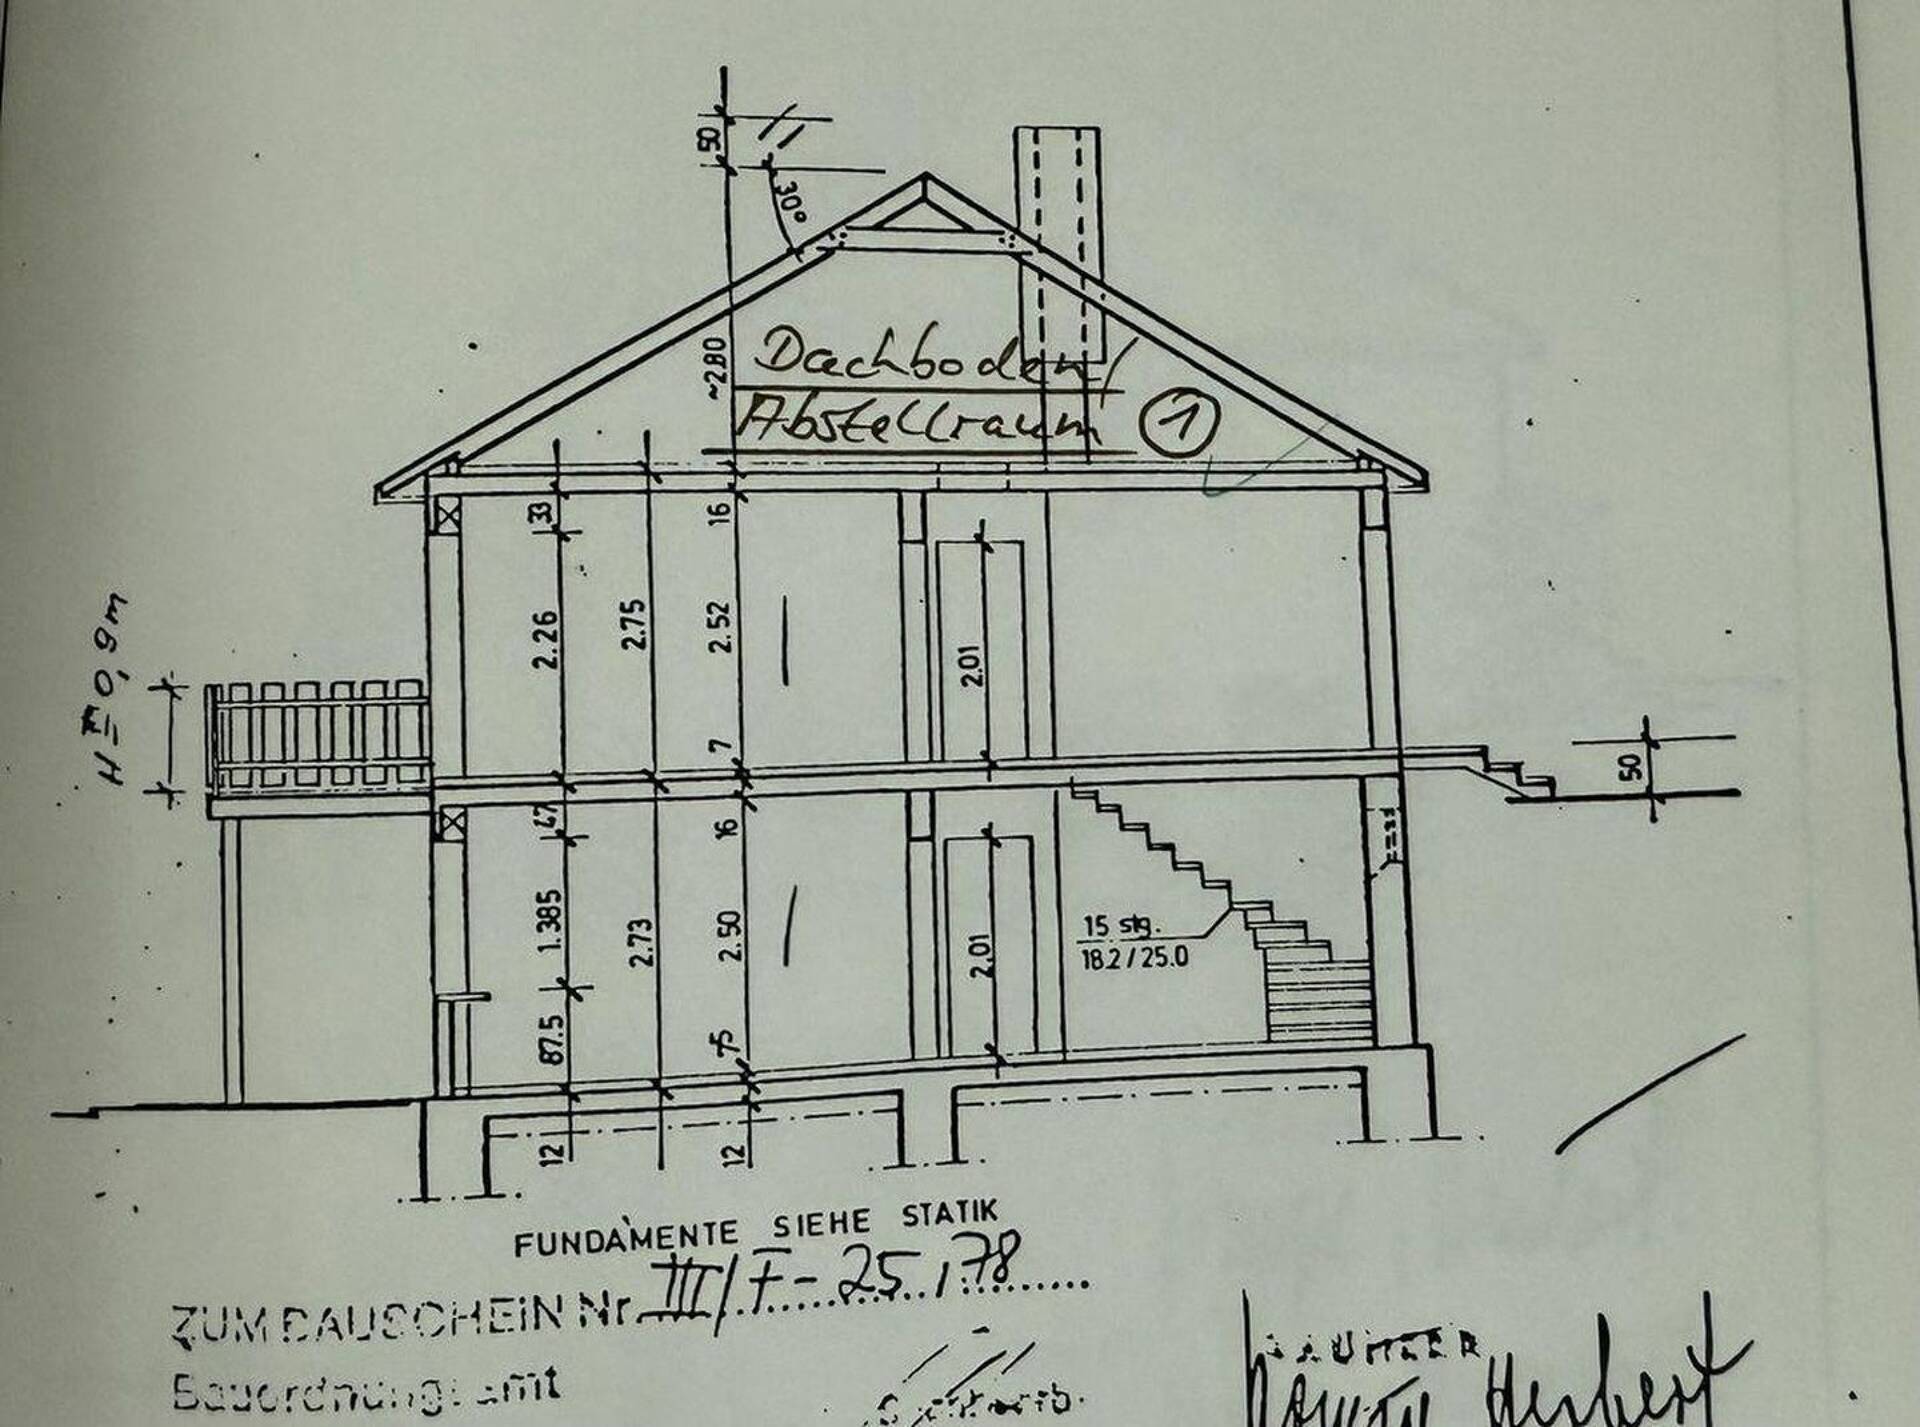 50
30°
~2.80
Dachboden/
Abstellraum 1
33
16
2.26
2.75
2.52
2.01
7
H = 0,9m
50
47
16
1.385
2.73
2.50
2.01
15 stg.
18.2/25.0
87.5
12
12
FUNDAMENTE SIEHE STATIK
ZUM BAUSCHEIN Nr. III/F-25/78
Bauordnungsamt
Herbert